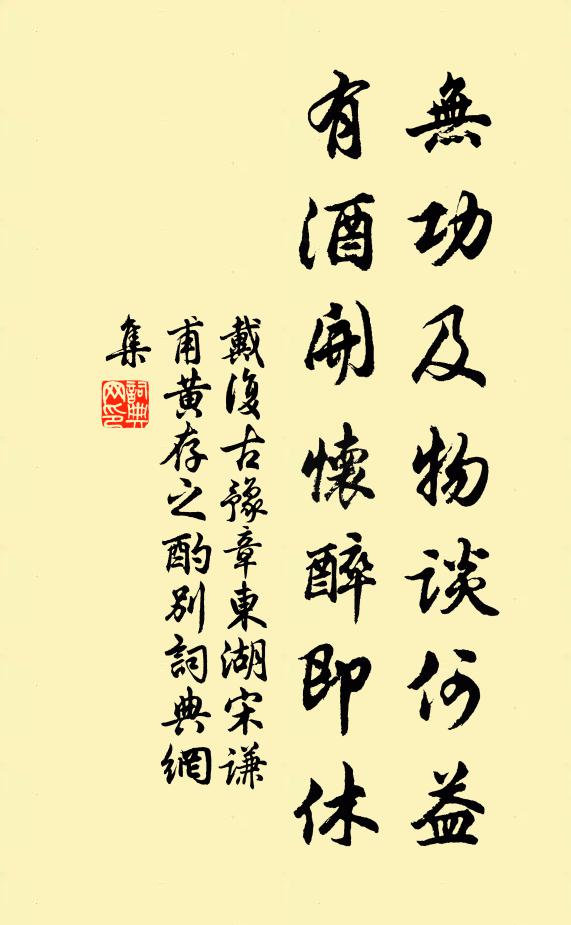 無功及物談何益
有酒開懷醉即休
戴復古豫章東湖宋謙
甫黄存之酌别詞典網
集
詞典
网印